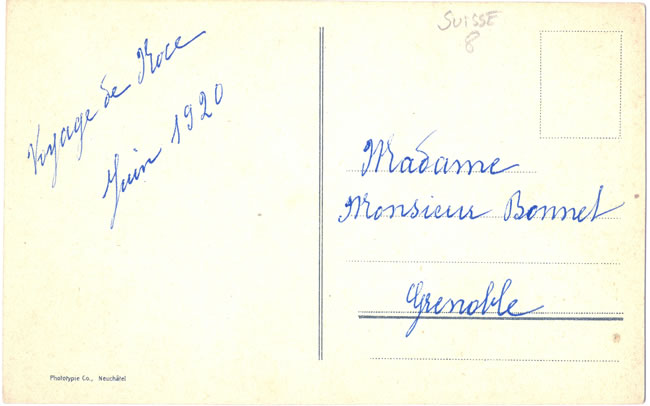 Voyage de Noce
Juin 1920
SUISSE
8
Madame
Monsieur Bonnet
Grenoble
Phototypie Co., Neuchâtel